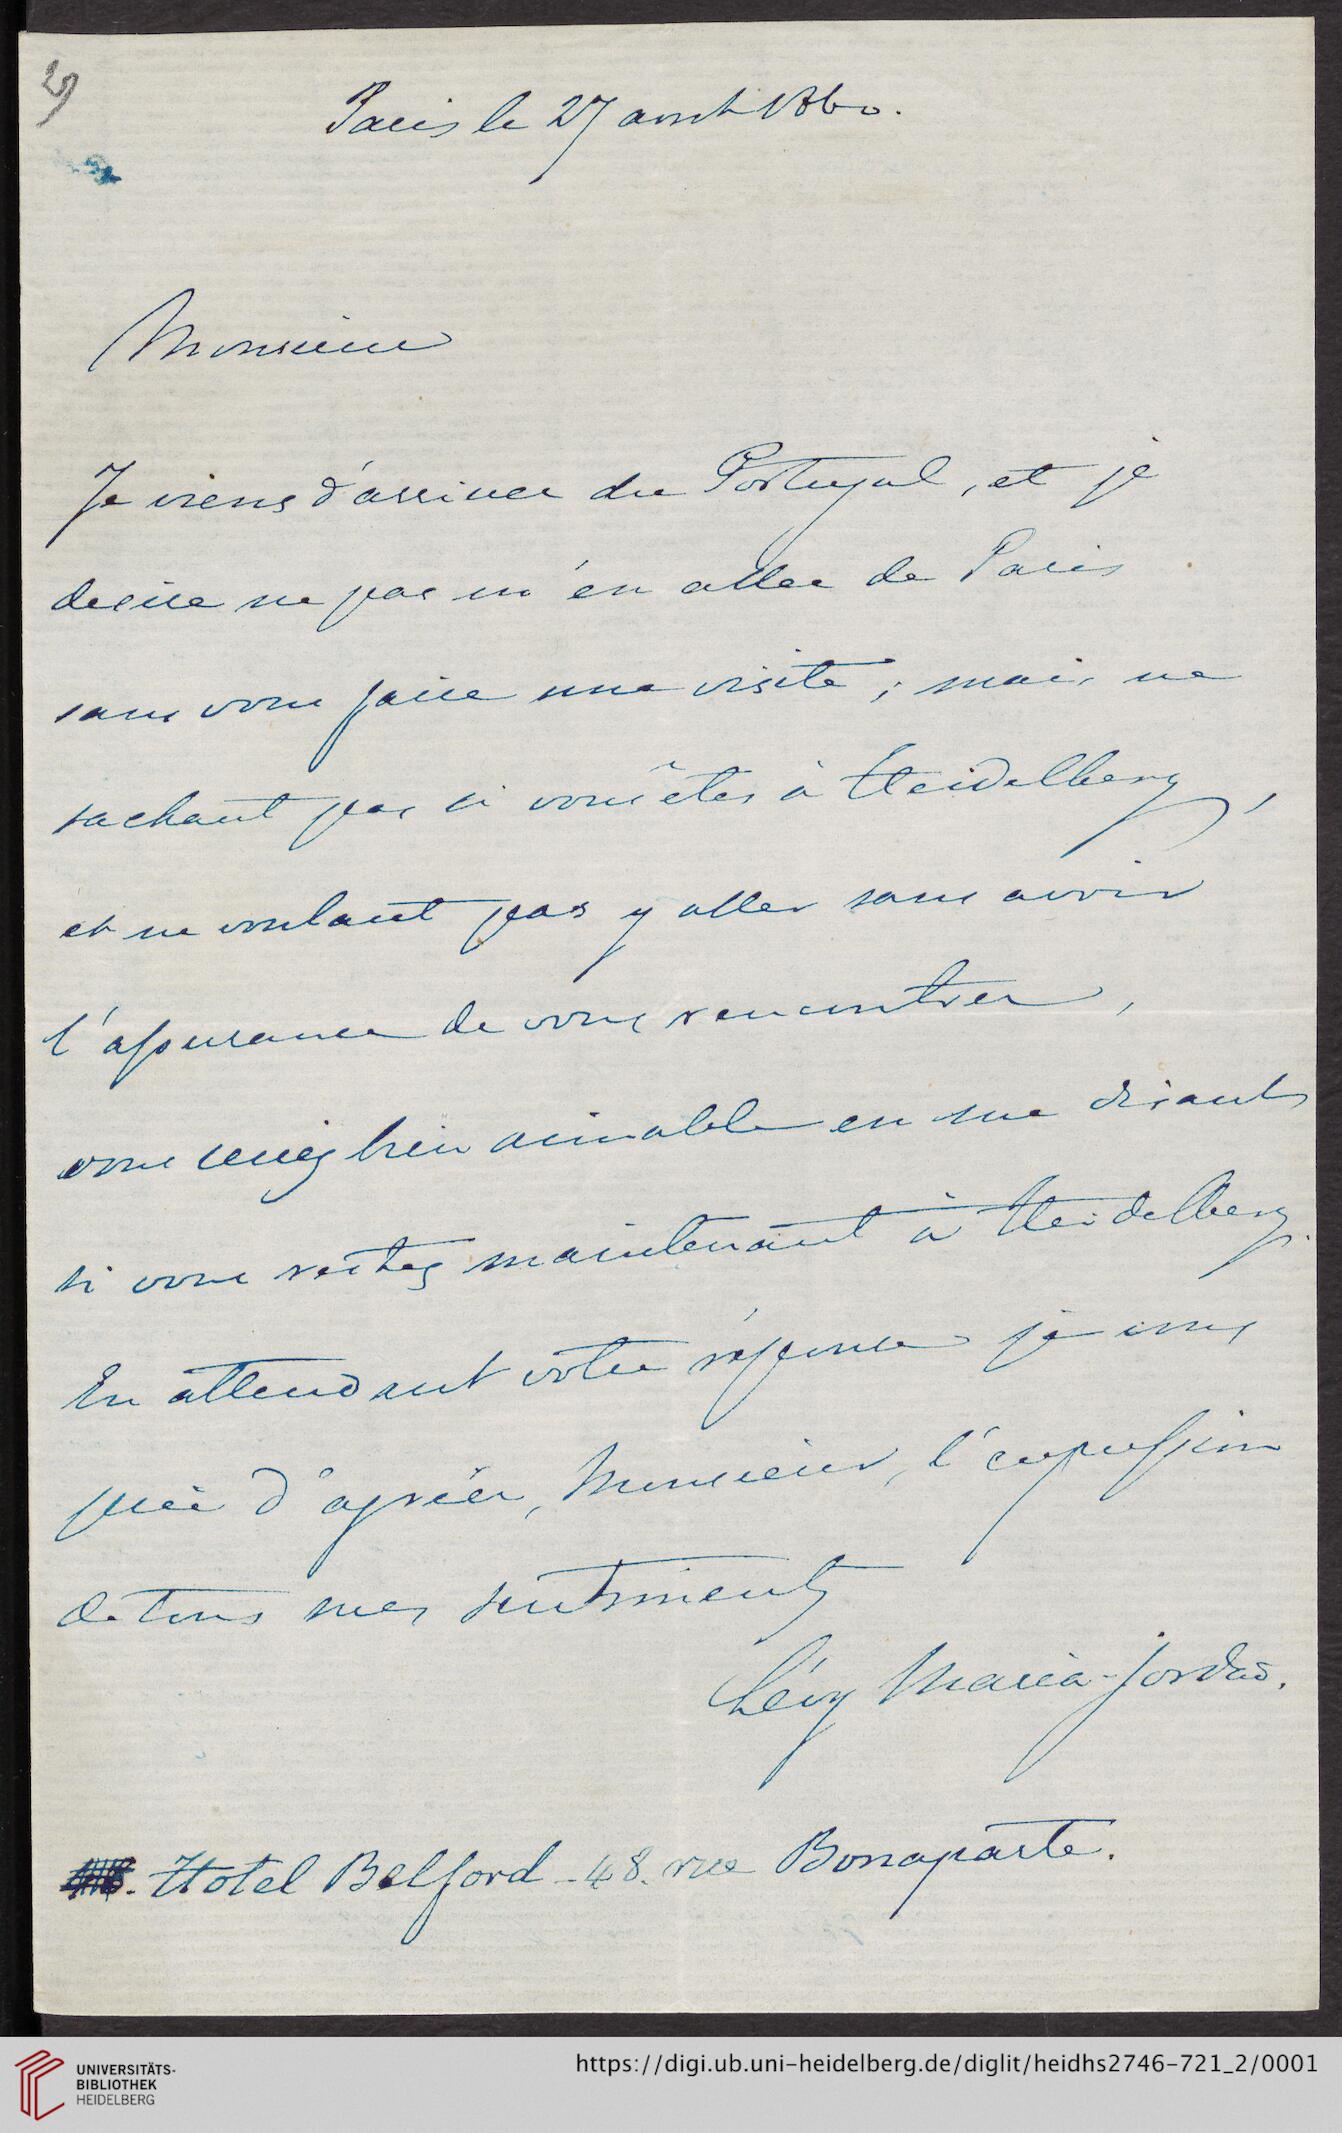 Paris le 27 août 1860.
Monsieur
Je viens d'arriver du Portugal, et je
desire ne pas m'en aller de Paris
sans vous faire une visite; mais ne
sachant pas si vous êtes à Heidelberg,
et ne voulant pas y aller sans avoir
l'assurance de vous rencontrer,
vous seriez bien aimable en me disant
si vous restez maintenant à Heidelberg.
En attendant votre réponse je vous
prie d'agréer, Monsieur, l'expression
de tous mes sentiments
Lévy Maria Jordaõ.
Hotel Belford - 48. rue Bonaparte.
UNIVERSITÄTS-
BIBLIOTHEK
HEIDELBERG
https://digi.ub.uni-heidelberg.de/diglit/heidhs2746-721_2/0001